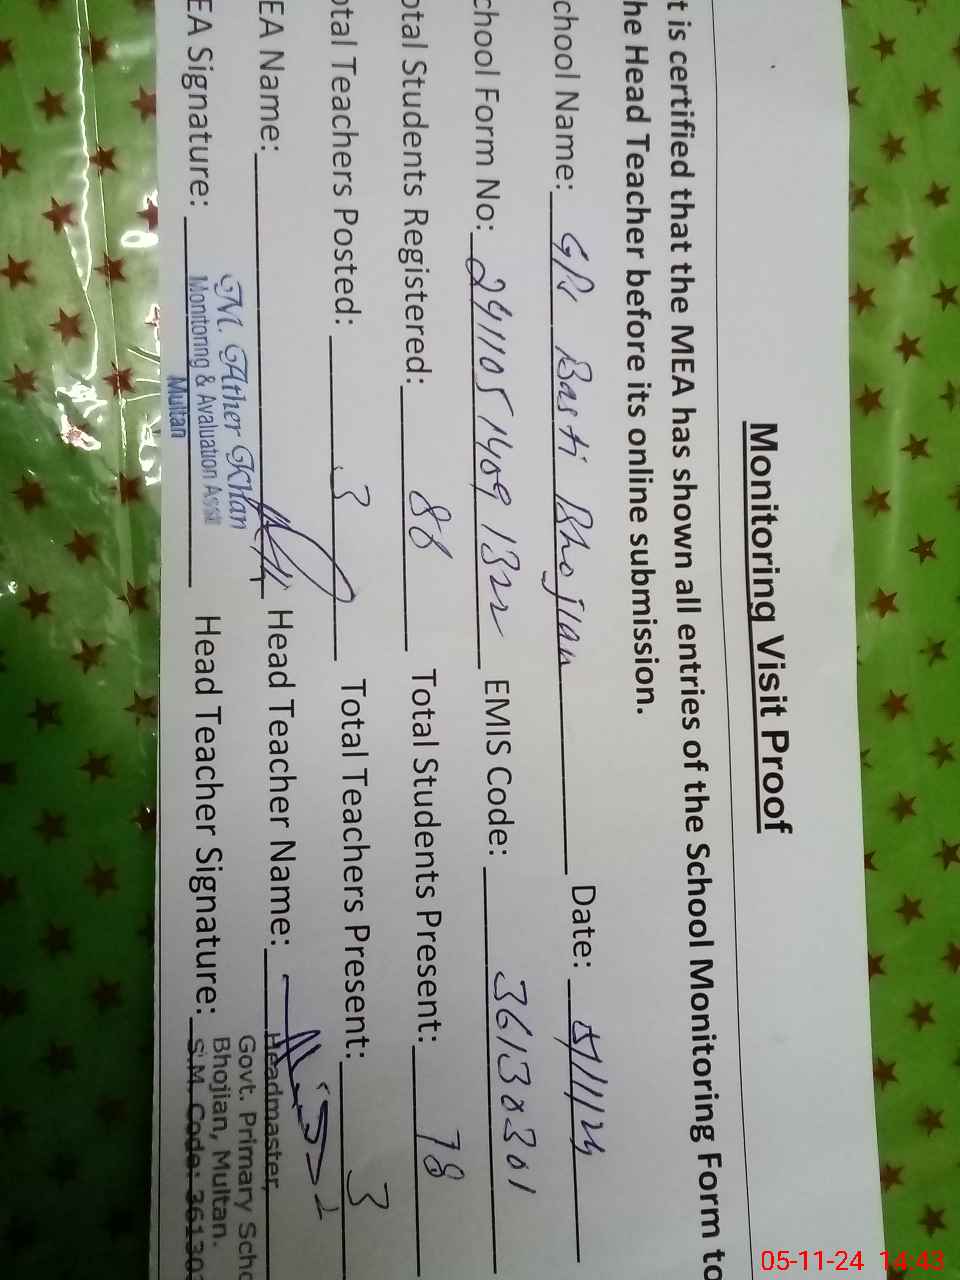 Monitoring Visit Proof
t is certified that the MEA has shown all entries of the School Monitoring Form to
he Head Teacher before its online submission.
chool Name: GPS Basti Bhojian Date: 5/11/24
chool Form No: 241105 1409 1322 EMIS Code: 36130301
otal Students Registered: 88 Total Students Present: 78
otal Teachers Posted: 3 Total Teachers Present: 3
EA Name: Head Teacher Name:
M. Ather Khan
Monitoring & Avaluation Asstt
Multan
EA Signature: Head Teacher Signature:
Headmaster,
Govt. Primary Scho
Bhojian, Multan.
S.M. Code: 361303
05-11-24 14:43